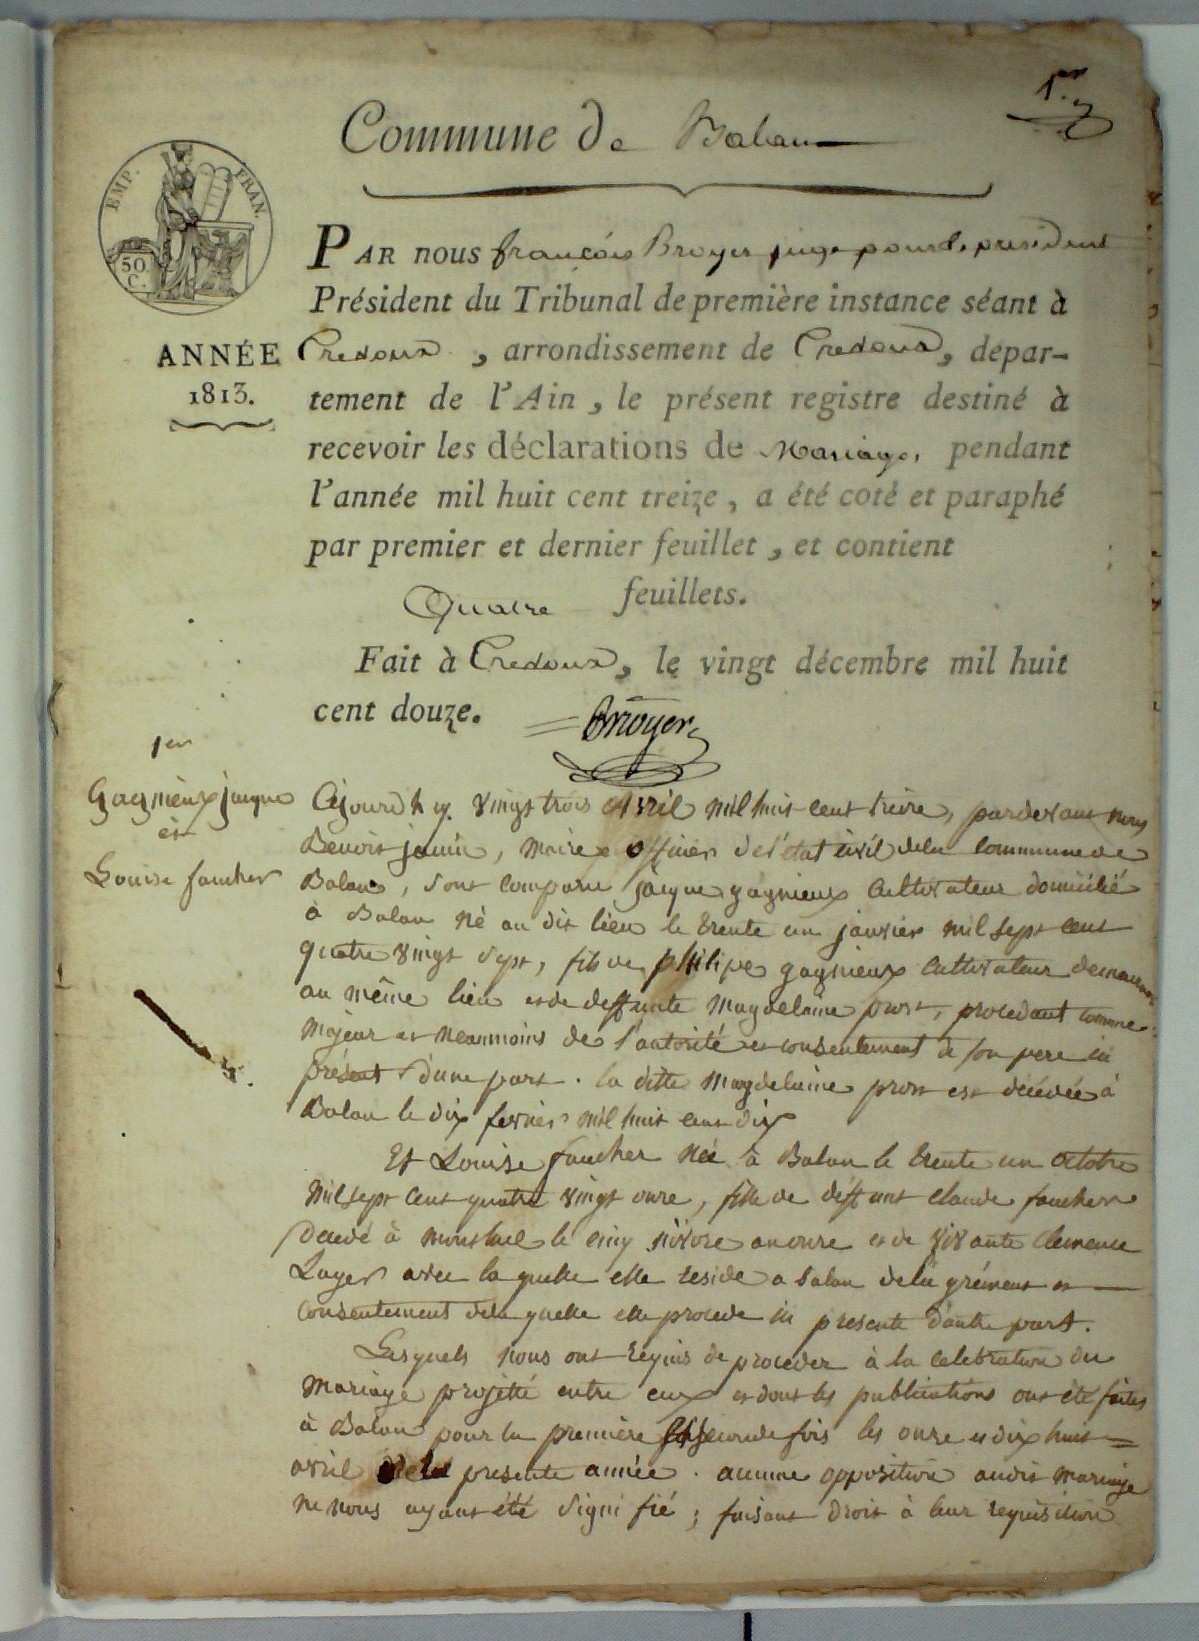 1er
Commune de Balan
EMP. FRAN.
50 C.
PAR nous françois Broyer juge pour le président
Président du Tribunal de première instance séant à
ANNÉE
1813.
Trévoux, arrondissement de Trévoux, dépar-
tement de l'Ain, le présent registre destiné à
recevoir les déclarations de Mariage, pendant
l'année mil huit cent treize, a été coté et paraphé
par premier et dernier feuillet, et contient
Quatre feuillets.
Fait à Trévoux, le vingt décembre mil huit
cent douze.
Broyer
1er
Gagnieux jacque
et
Louise faucher
Cejourd'huy vingt trois Avril mil huit cent treize, pardevant nous
Benoit jamin, maire officier de l'état civil dela commune de
Balan, sont comparu jacque gagnieux cultivateur domicilié
à Balan né au dit lieu le trente un janvier mil sept cent
quatre vingt sept, fils de philipe gagnieux cultivateur demeurant
au même lieu et de deffunte magdelaine prost, procedant comme
majeur et neanmoins de l'autorité et consentement de son pere ici
présent d'une part. la ditte magdelaine prost est décédée à
Balan le dix fevrier mil huit cent dix
Et Louise faucher née à Balan le trente un octobre
mil sept cent quatre vingt onze, fille de deffunt claude faucher
décédé à montluel le cinq nivose an onze et de vivante clemence
Layer avec la quelle elle reside a balan de la grément et
consentement dela quelle elle procede ici presente d'autre part.
Lesquels nous ont requis de proceder à la celebration du
mariage projetté entre eux et dont les publications ont été faites
à Balan pour la première et seconde fois les onze et dix huit
avril de la presente année. aucune opposition audit mariage
ne nous ayant été signifié; faisant droit à leur requisition